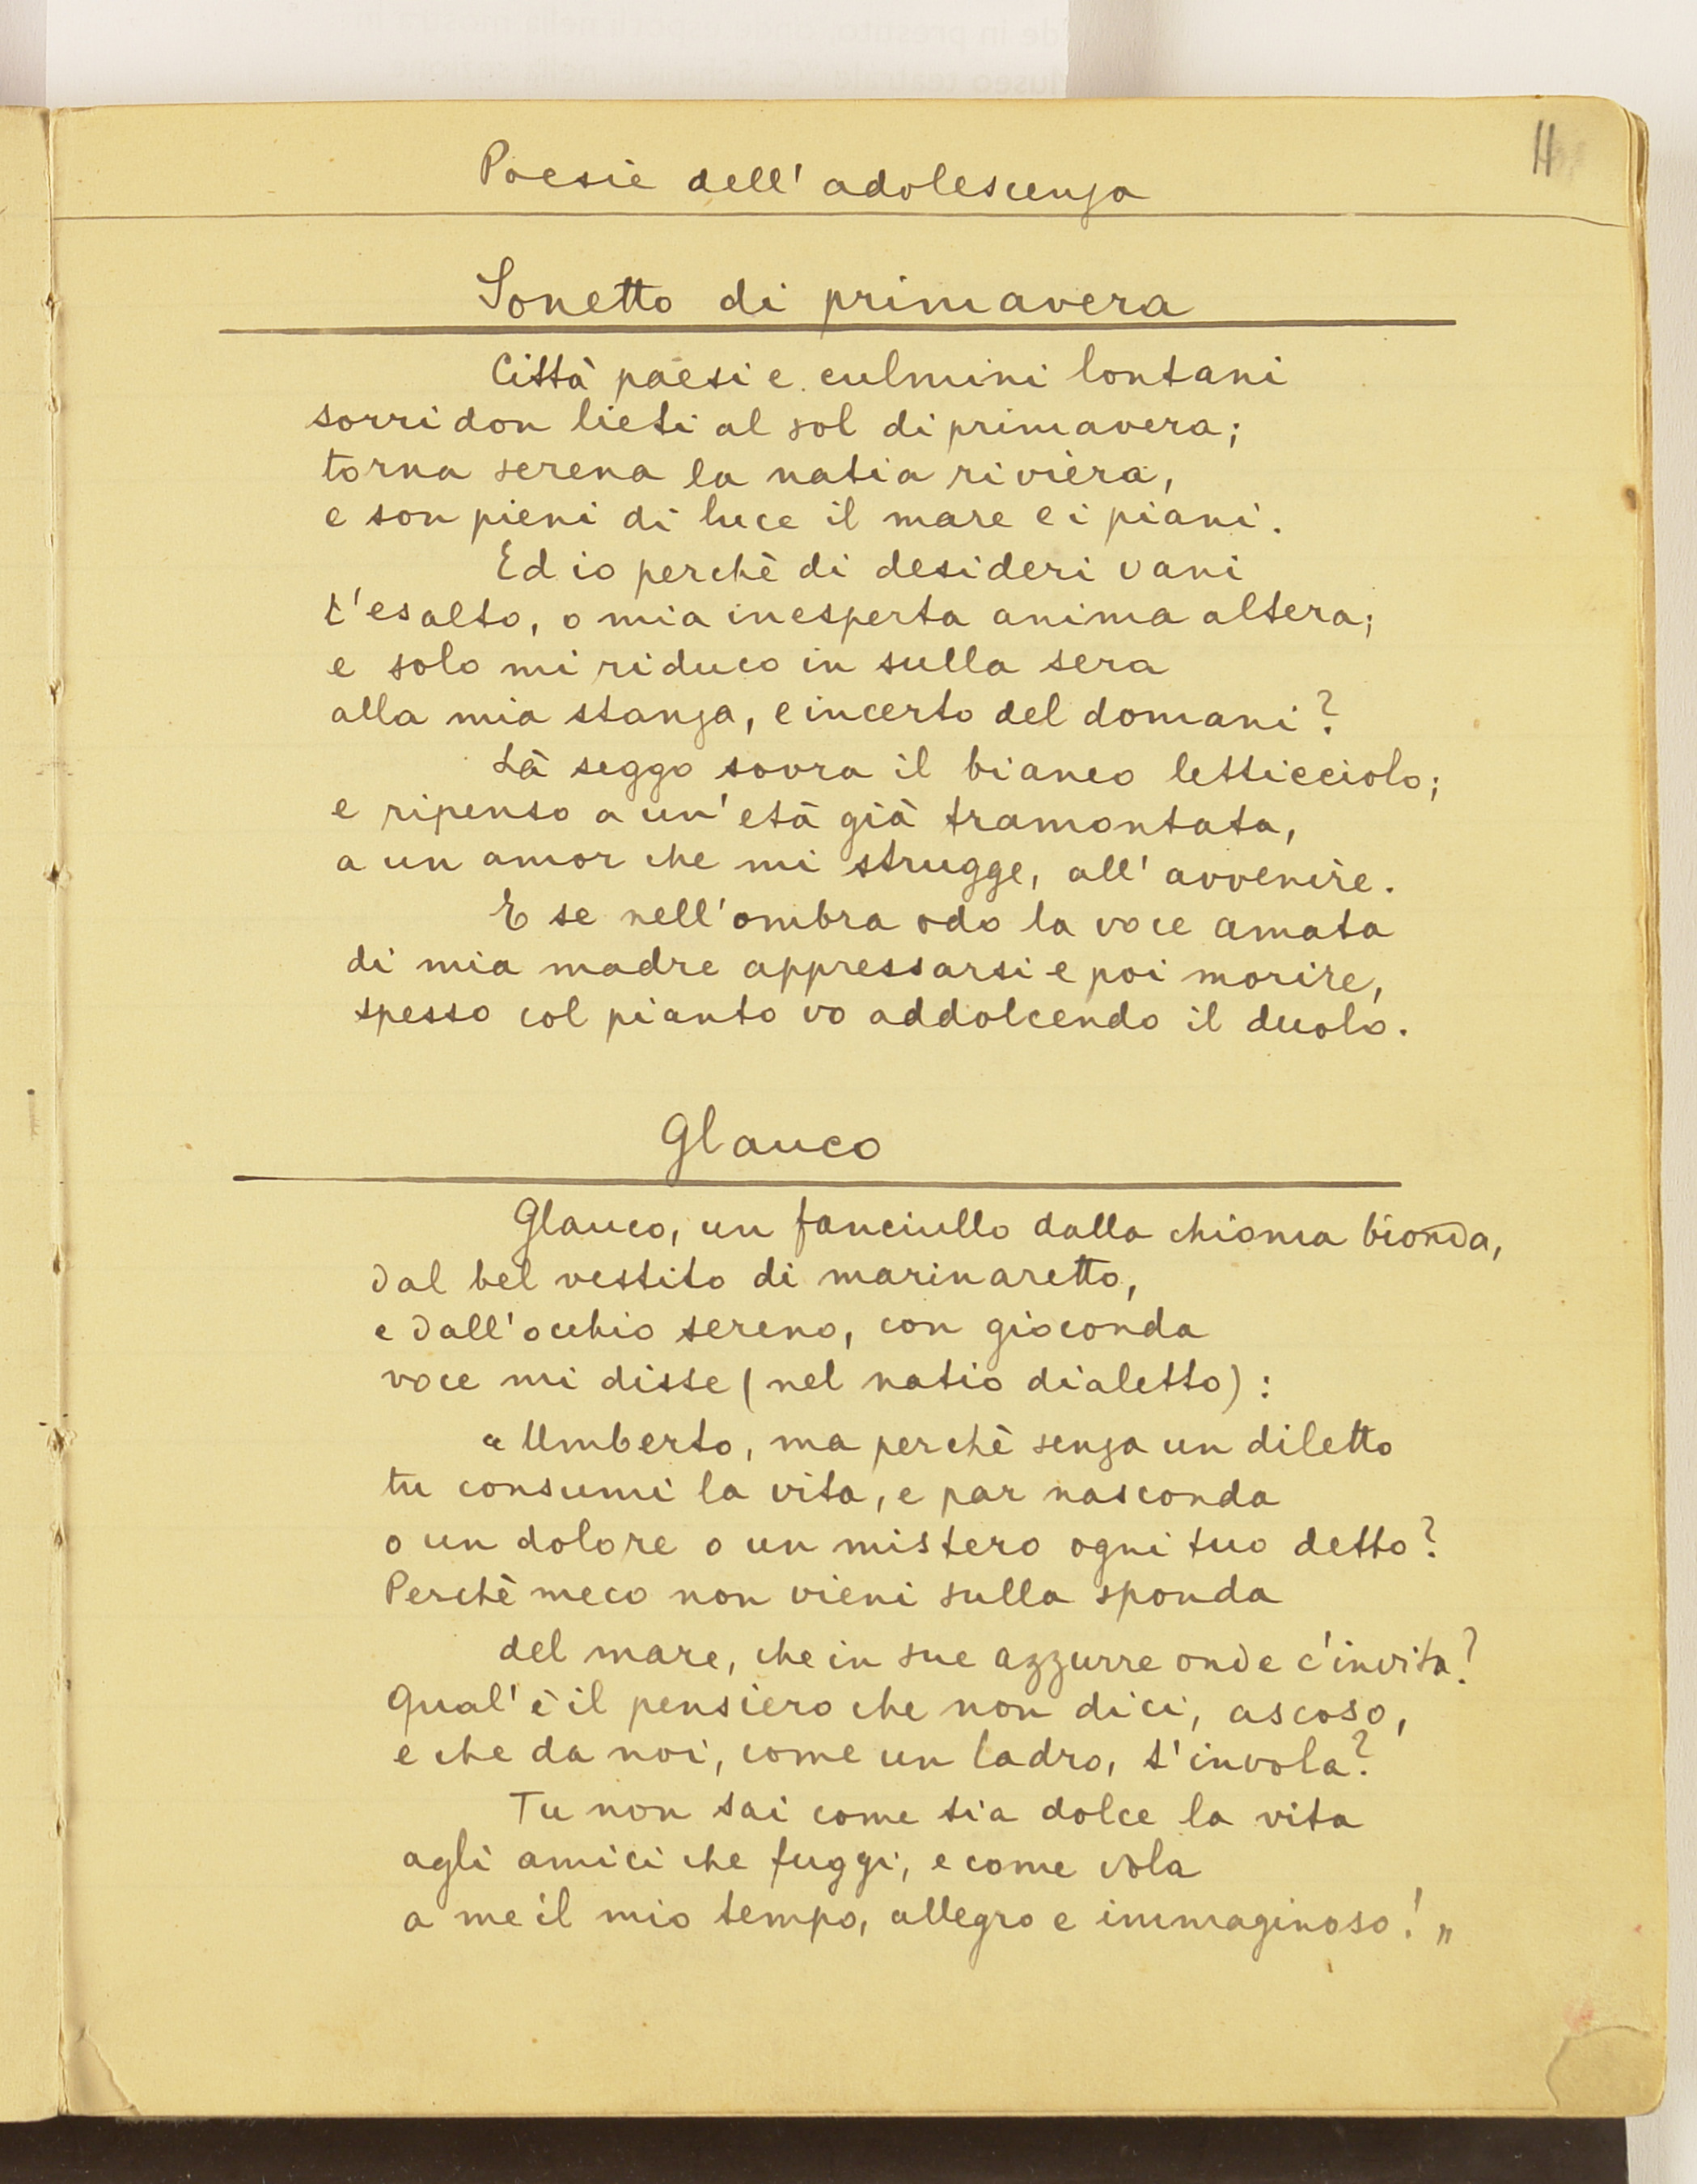 11
Poesie dell'adolescenza
Sonetto di primavera
Città paesi e culmini lontani
sorridon lieti al sol di primavera;
torna serena la natia rivièra,
e son pieni di luce il mare e i piani.
Ed io perchè di desideri vani
t'esalto, o mia inesperta anima altera;
e solo mi riduco in sulla sera
alla mia stanza, e incerto del domani?
Là seggo sovra il bianco letticciolo;
e ripenso a un'età già tramontata,
a un amor che mi strugge, all'avvenire.
E se nell'ombra odo la voce amata
di mia madre appressarsi e poi morire,
spesso col pianto vo addolcendo il duolo.
Glauco
Glauco, un fanciullo dalla chioma bionda,
dal bel vestito di marinaretto,
e dall'occhio sereno, con gioconda
voce mi disse (nel natio dialetto):
« Umberto, ma perchè senza un diletto
tu consumi la vita, e par nasconda
o un dolore o un mistero ogni tuo detto?
Perchè meco non vieni sulla sponda
del mare, che in sue azzurre onde c'invita?
Qual'è il pensiero che non dici, ascoso,
e che da noi, come un ladro, t'invola?
Tu non sai come sia dolce la vita
agli amici che fuggi, e come vola
a me il mio tempo, allegro e immaginoso! „